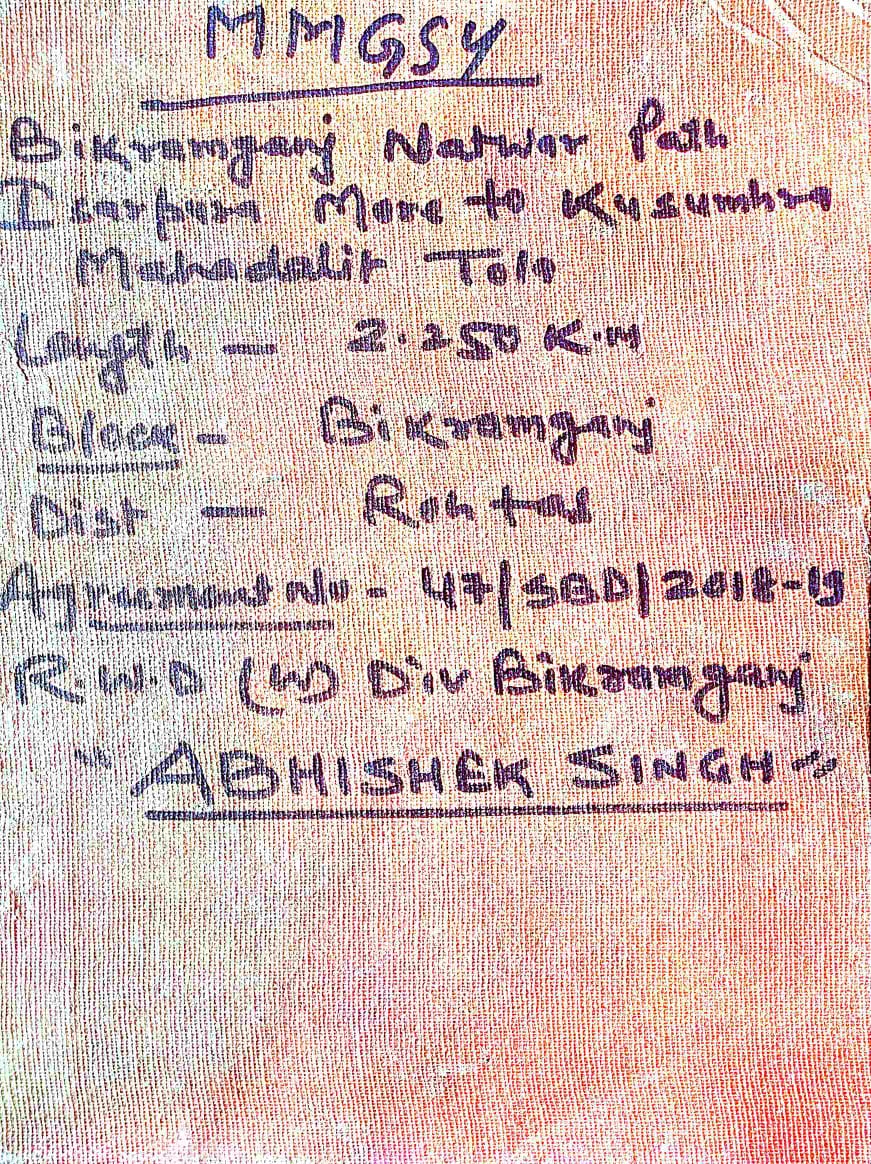 MMGSY
Bikramganj Natwar Path
Isarpura More to Kusumhra
Mahadalit Tola
Length — 2.250 K.M
Block - Bikramganj
Dist — Rohtas
Agreement No - 47/SBD/2018-19
R.W.D (W) Div Bikramganj
"ABHISHEK SINGH"